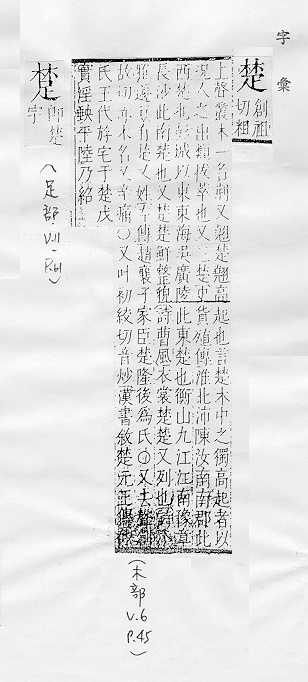 字彙
楚
創祖
切粗
上聲叢木一名荊又翹楚翹高起也言楚木中之獨高起者以
況人之出類拔萃也又三楚史貨殖傳淮北沛陳汝南南郡此
西楚也彭城以東東海吳廣陵此東楚也衡山九江江南豫章
長沙此南楚也又楚楚鮮整貌詩曹風衣裳楚楚又列也
雅籩豆有楚又姓左傳趙襄子家臣楚隆後爲氏○又去聲創
故切亦木名又辛痛○又叶初紋切音炒漢書敘楚元王
氏王代斿宅于楚戊
實淫軼平陸乃紹
(木部 V.6 P.45)
楚
即楚
字
(足部 VII-